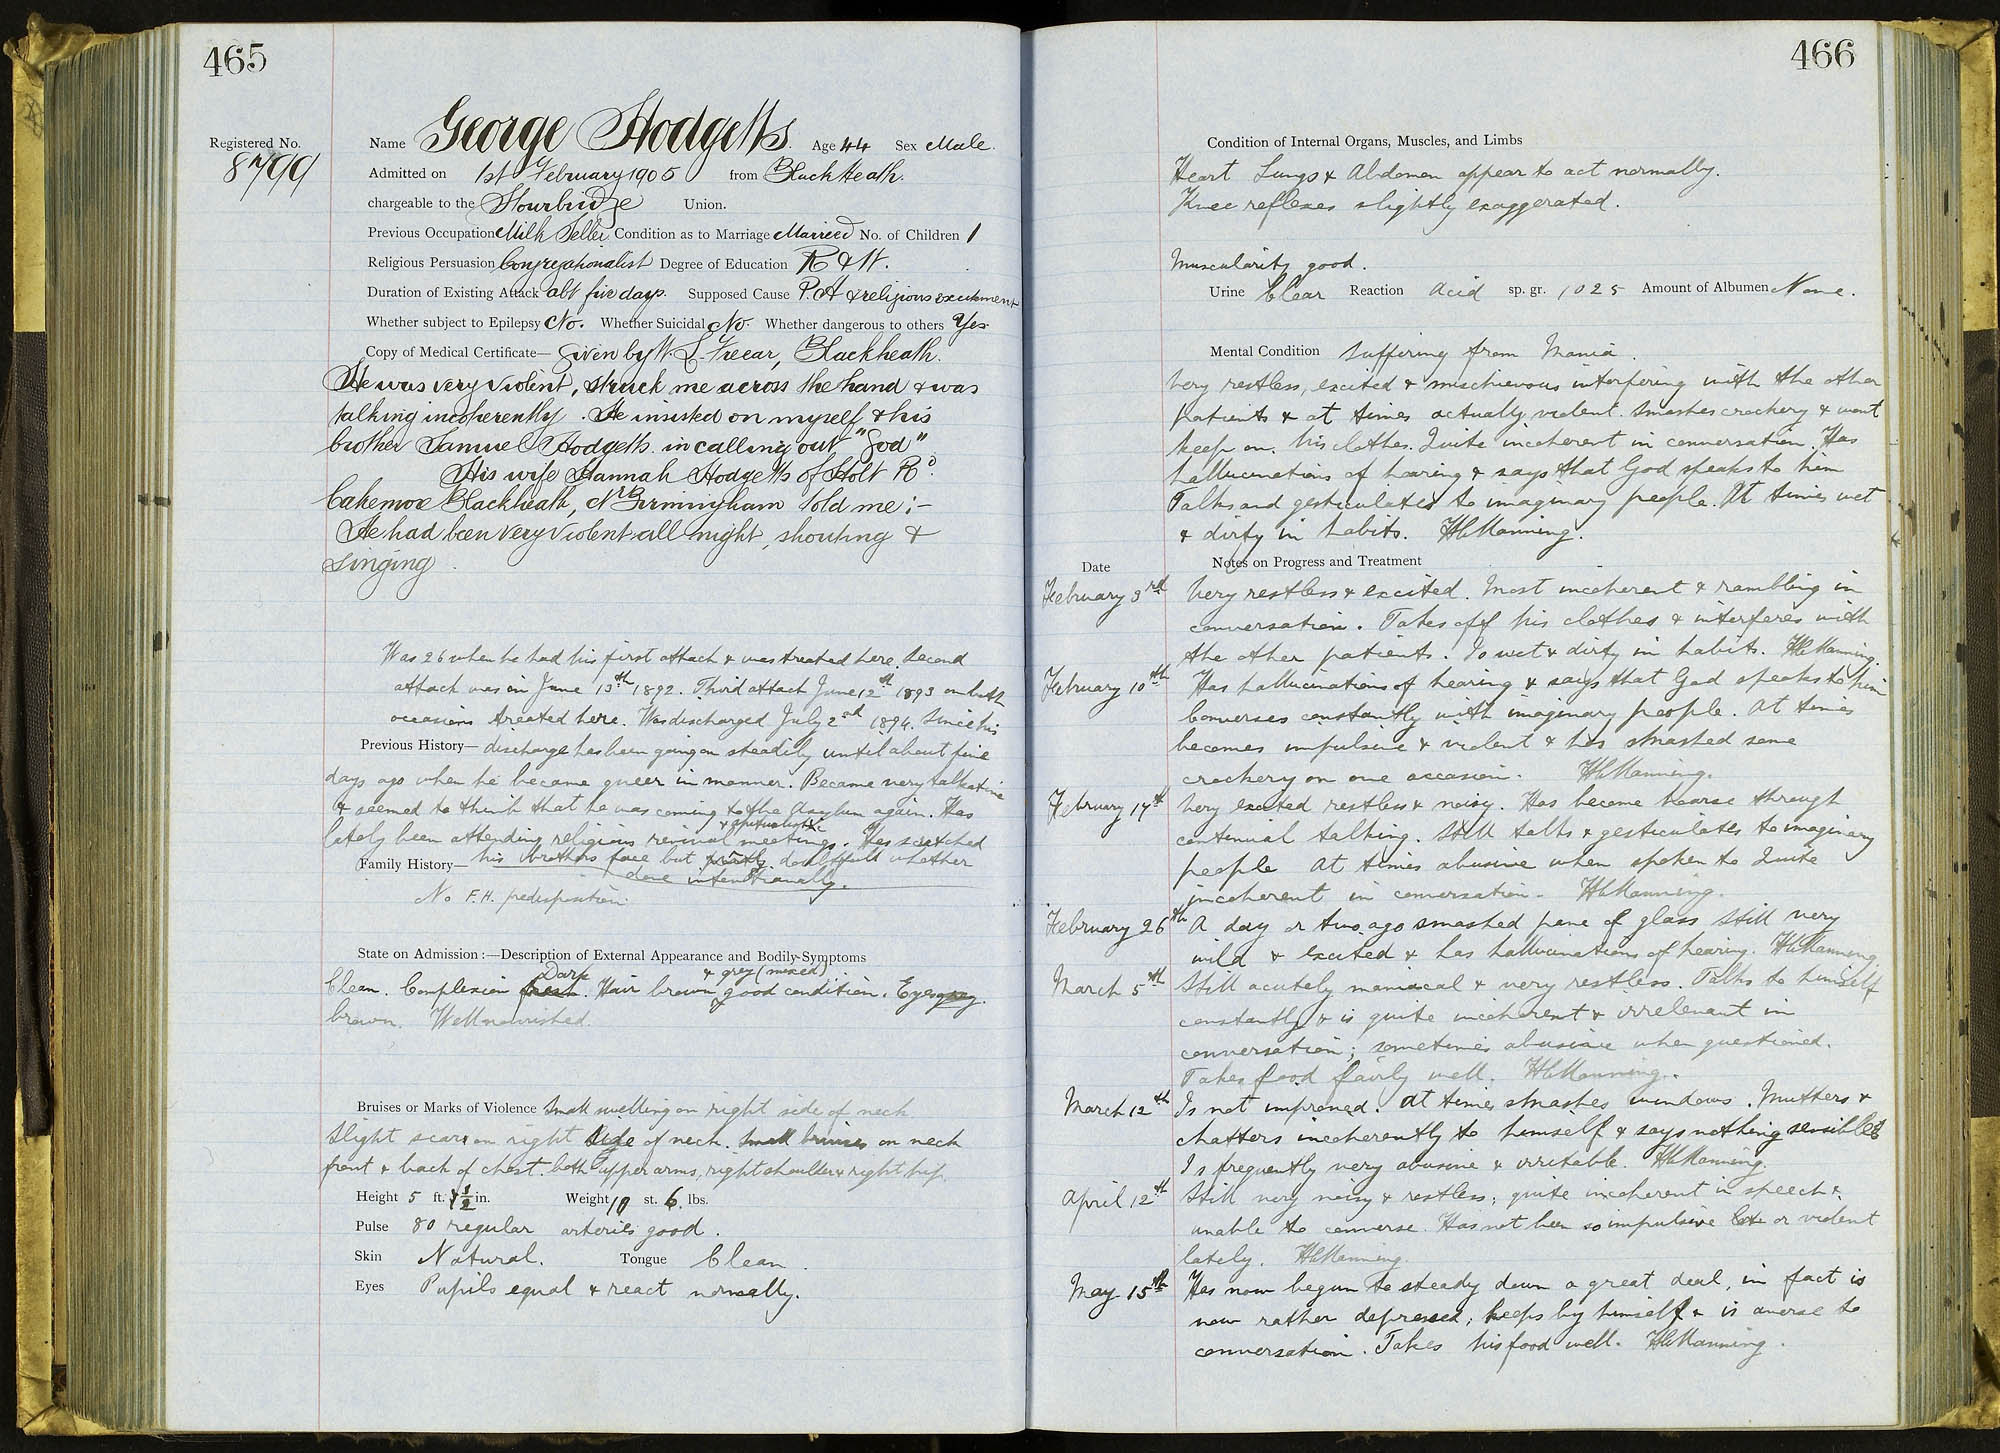 465
Registered No.
8799
Name George Hodgetts. Age 44 Sex Male.
Admitted on 1st February 1905 from Blackheath.
chargeable to the Stourbridge Union.
Previous Occupation Milk Seller Condition as to Marriage Married No. of Children 1
Religious Persuasion Congregationalist Degree of Education R & W.
Duration of Existing Attack abt five days. Supposed Cause P.A & religious excitement
Whether subject to Epilepsy No. Whether Suicidal No. Whether dangerous to others Yes.
Copy of Medical Certificate— Given by W. L. Freear, Blackheath.
He was very violent, struck me across the hand & was
talking incoherently. He insisted on myself & his
brother Samuel Hodgetts in calling out "God"
His wife Hannah Hodgetts of Holt Rd.
Cakemore Blackheath, Nr Birmingham told me:-
He had been very violent all night, shouting &
singing.
Was 26 when he had his first attack & was treated here. Second
attack was in June 13th 1892. Third attack June 12th 1893 on both
occasions treated here. Was discharged July 2nd 1894. Since his
Previous History— discharge has been going on steadily until about five
days ago when he became queer in manner. Became very talkative
& seemed to think that he was coming to the Asylum again. Has
& spiritualistic
lately been attending religious revival meetings. Has scratched
Family History— his brothers face but doubtfull whether
done intentionally.
No F.H. predisposition.
State on Admission:—Description of External Appearance and Bodily Symptoms
Dark & grey (mixed)
Clean. Complexion fresh. Hair brown good condition. Eyes grey.
brown. Well nourished.
Bruises or Marks of Violence Small swelling on right side of neck
Slight scars on right side of neck. Small bruises on neck
front & back of chest. both upper arms, right shoulder & right hip.
Height 5 ft. ½ in. Weight 10 st. 6 lbs.
Pulse 80 regular arteries good.
Skin Natural. Tongue Clean.
Eyes Pupils equal & react normally.
466
Condition of Internal Organs, Muscles, and Limbs
Heart Lungs & Abdomen appear to act normally.
Knee reflexes slightly exaggerated.
Muscularity good.
Urine Clear Reaction Acid sp. gr. 1025 Amount of Albumen None.
Mental Condition Suffering from Mania.
Very restless, excited & mischievous interfering with the other
patients & at times actually violent. Smashes crockery & wont
keep on his clothes. Quite incoherent in conversation. Has
hallucinations of hearing & says that God speaks to him
Talks and gesticulates to imaginary people. At times wet
& dirty in habits. HCManning.
Date Notes on Progress and Treatment
February 3rd Very restless & excited. Most incoherent & rambling in
conversation. Takes off his clothes & interferes with
the other patients. Is wet & dirty in habits. HCManning.
February 10th Has hallucinations of hearing & says that God speaks to him
Converses constantly with imaginary people. At times
becomes impulsive & violent & has smashed some
crockery on one occasion. HCManning.
February 17th Very excited restless & noisy. Has become hoarse through
continual talking. Still talks & gesticulates to imaginary
people At times abusive when spoken to Quite
incoherent in conversation. HCManning.
February 26th A day or two ago smashed pane of glass Still very
wild & excited & has hallucinations of hearing. HCManning.
March 5th Still acutely maniacal & very restless. Talks to himself
constantly & is quite incoherent & irrelevant in
conversation; sometimes abusive when questioned.
Takes food fairly well. HCManning.
March 12th Is not improved. At times smashes windows. Mutters &
chatters incoherently to himself & says nothing sensible
Is frequently very abusive & irritable. HCManning.
April 12th Still very noisy & restless; quite incoherent in speech &
unable to converse. Has not been so impulsive or violent
lately. HCManning.
May 15th Has now begun to steady down a great deal, in fact is
now rather depressed; keeps by himself & is averse to
conversation. Takes his food well. HCManning.